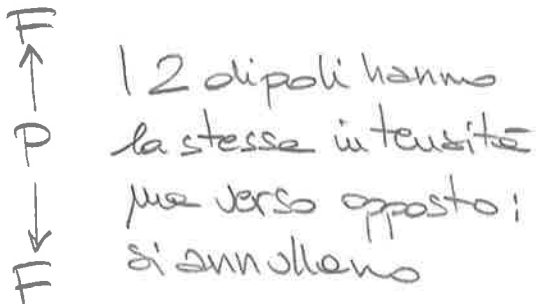 F
P
F
I 2 dipoli hanno
la stessa intensità
ma verso opposto:
si annullano